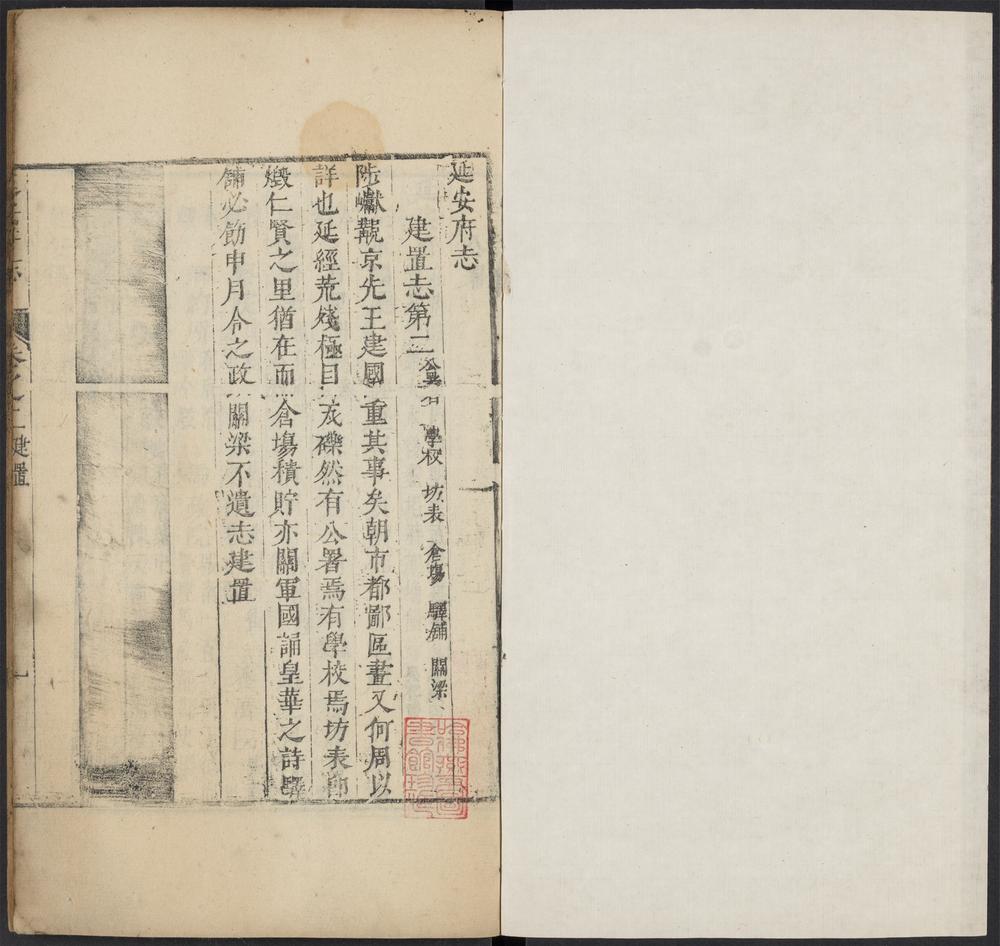 延安府志
建置志第二 公署 學校 坊表 倉塲 驛鋪 關梁
陟巘覯京先王建國重其事矣朝市都鄙區畫又何周以
詳也延經荒殘極目瓦礫然有公署焉有學校焉坊表
燬仁賢之里猶在而倉塲積貯亦關軍國誦皇華之詩驛
鋪必飭申月令之政關梁不遺志建置
卷之二建置